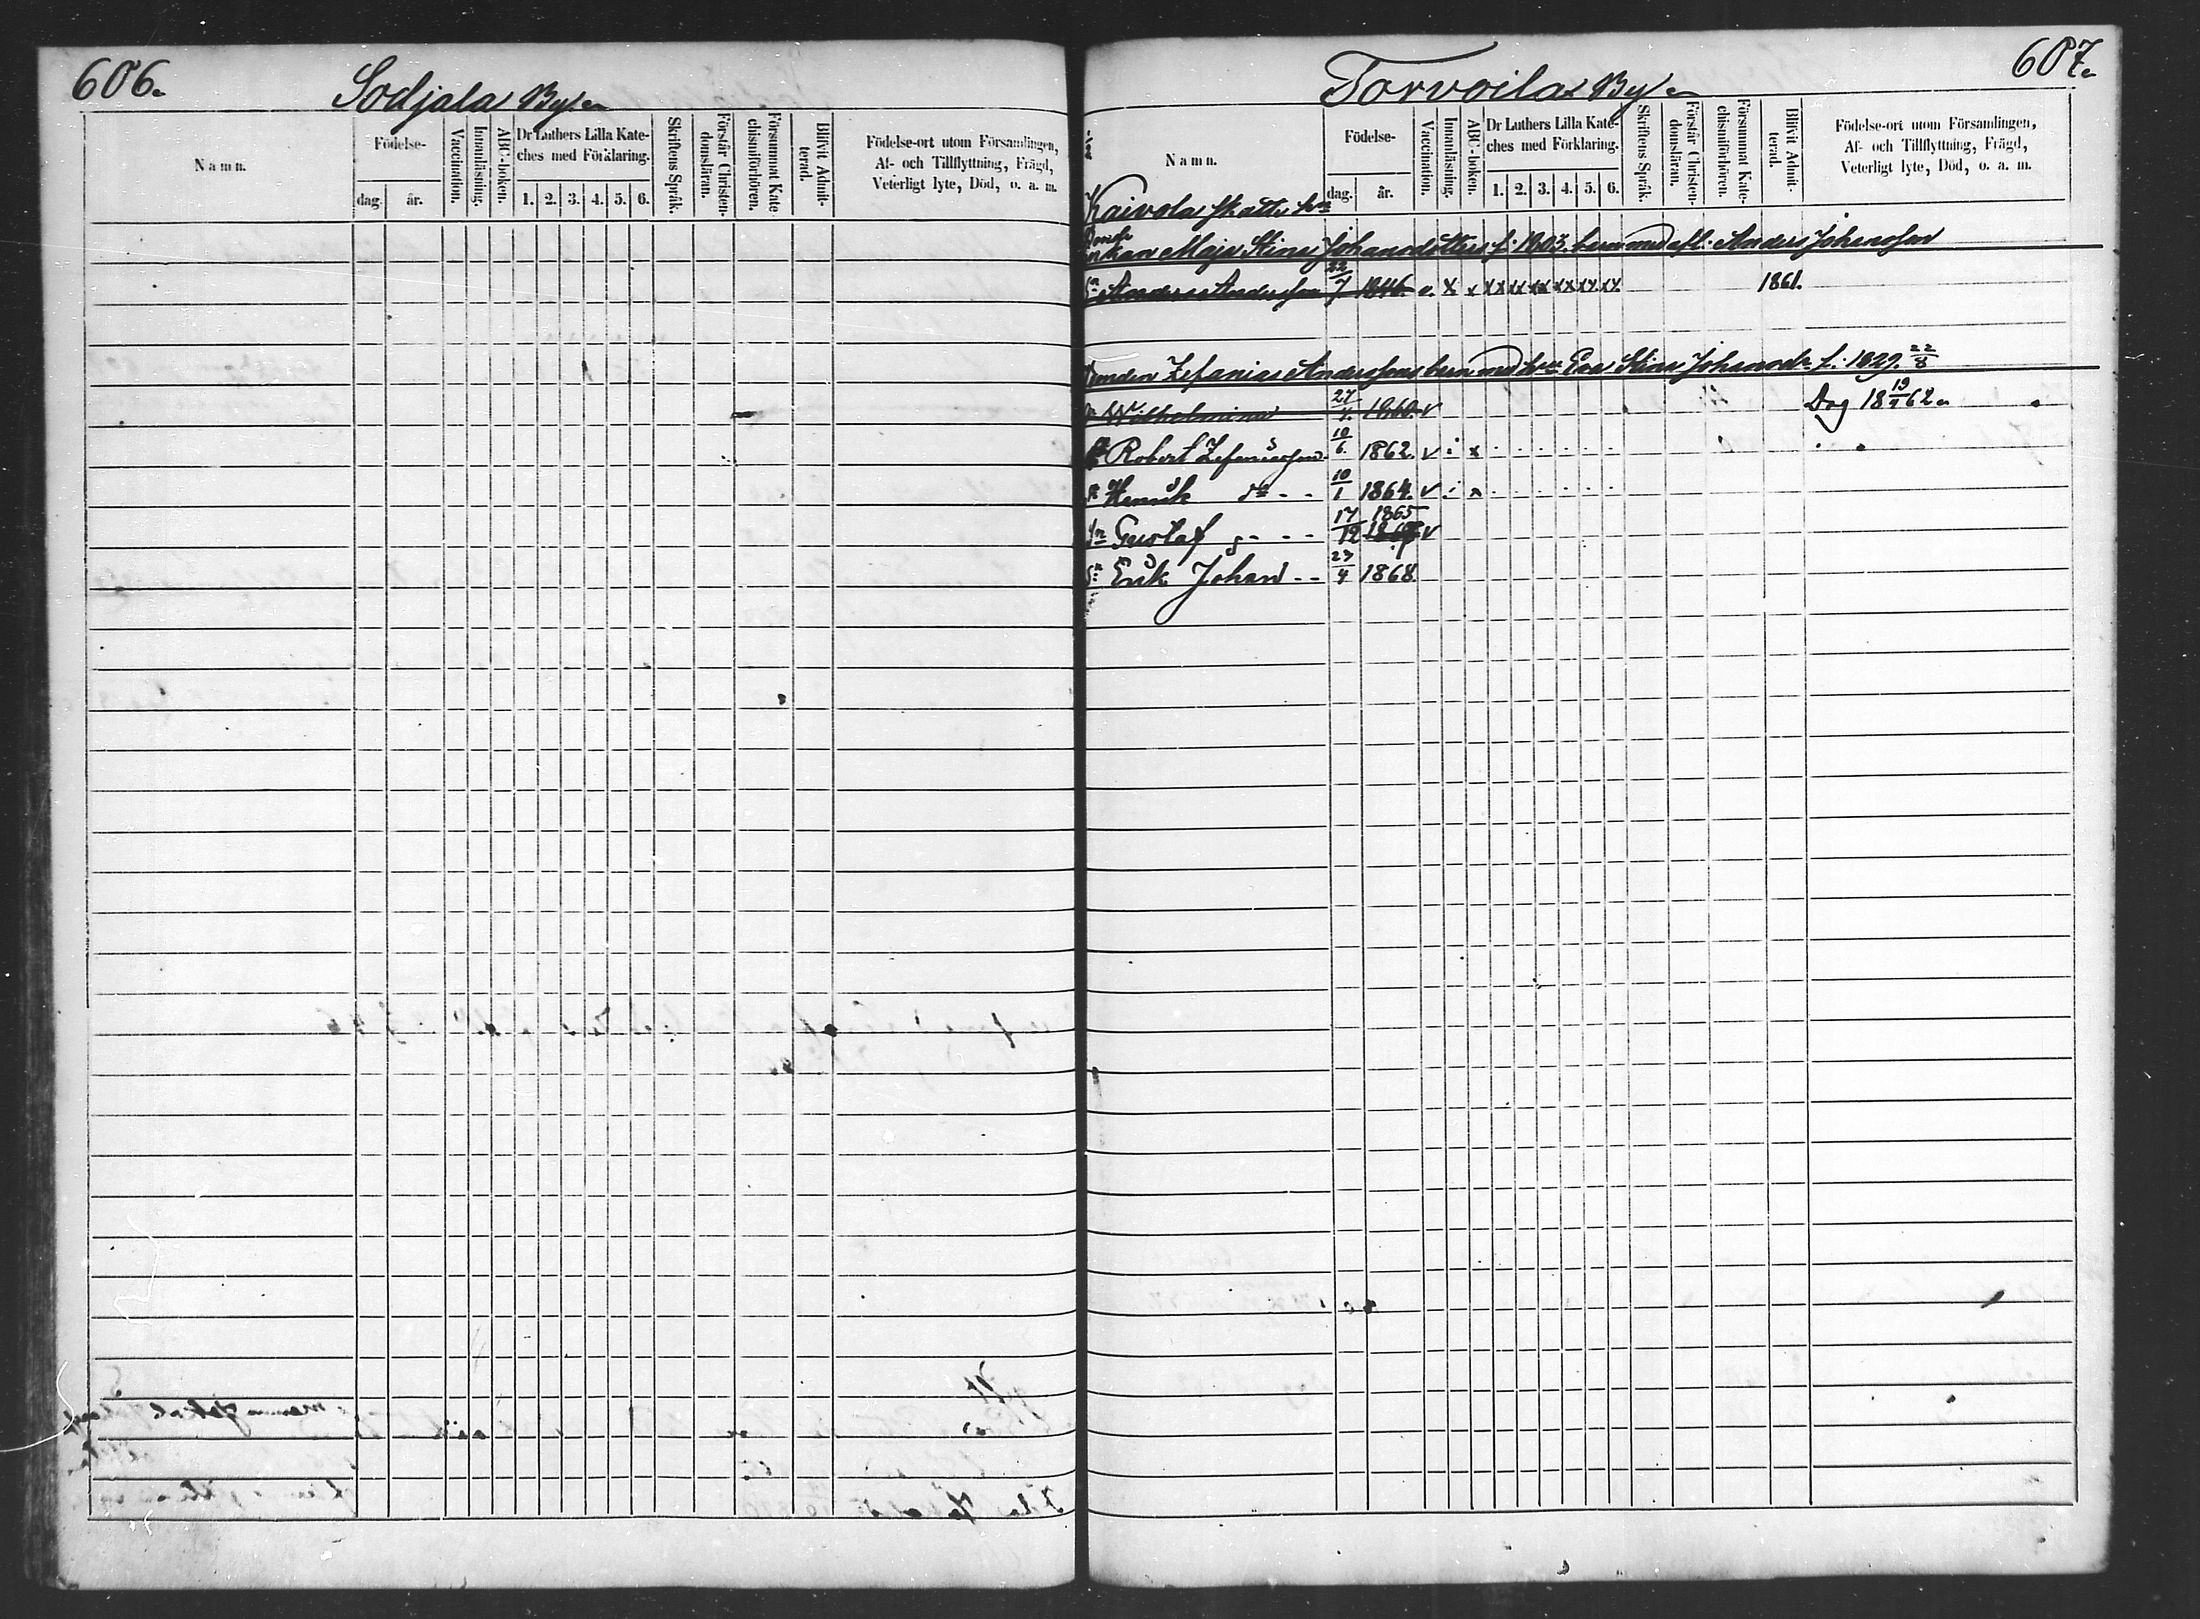 606.
Sodjala By
Namn.
Födelse-
dag.
år.
Vaccination.
Innanläsning.
ABC-boken.
Dr Luthers Lilla Kate-
ches med Förklaring.
1. 2. 3. 4. 5. 6.
Skriftens Språk.
Förstår Christen-
domsläran.
Försummat Kate
chismiförhören.
Blifvit Admit-
terad.
Födelse-ort utom Församlingen,
Af- och Tillflyttning, Frägd,
Veterligt lyte, Död, o. a. m.
607.
Torvoila By
Namn.
Födelse-
dag.
år.
Vaccination.
Innanläsning.
ABC-boken.
Dr Luthers Lilla Kate-
ches med Förklaring.
1. 2. 3. 4. 5. 6.
Skriftens Språk.
Förstår Christen-
domsläran.
Försummat Kate-
chismiförhören.
Blifvit Admit-
terad.
Födelse-ort utom Församlingen,
Af- och Tillflyttning, Frägd,
Veterligt lyte, Död, o. a. m.
Kaivola skatte hn
Enkan Maja Stina Johansdotters f. 1803. barn med afl. Anders Johansson
Sn Anders Andersson 22/7 1846. v. x x xx xx xx xx xx xx 1861.
Bonden Zefanias Anderssons barn med hu Eva Stina Johansdr f. 1829. 22/8
Wilhelmina 27/4 1860. v Dog 18 19/7 62.
Sn Robert Zefaniasson 10/6 1862. v i x
Sn Henrik dn - - 10/1 1864. v i x
Sn Gustaf - - - 17/12 1865 v
Sn Erik Johan - - 23/4 1868.